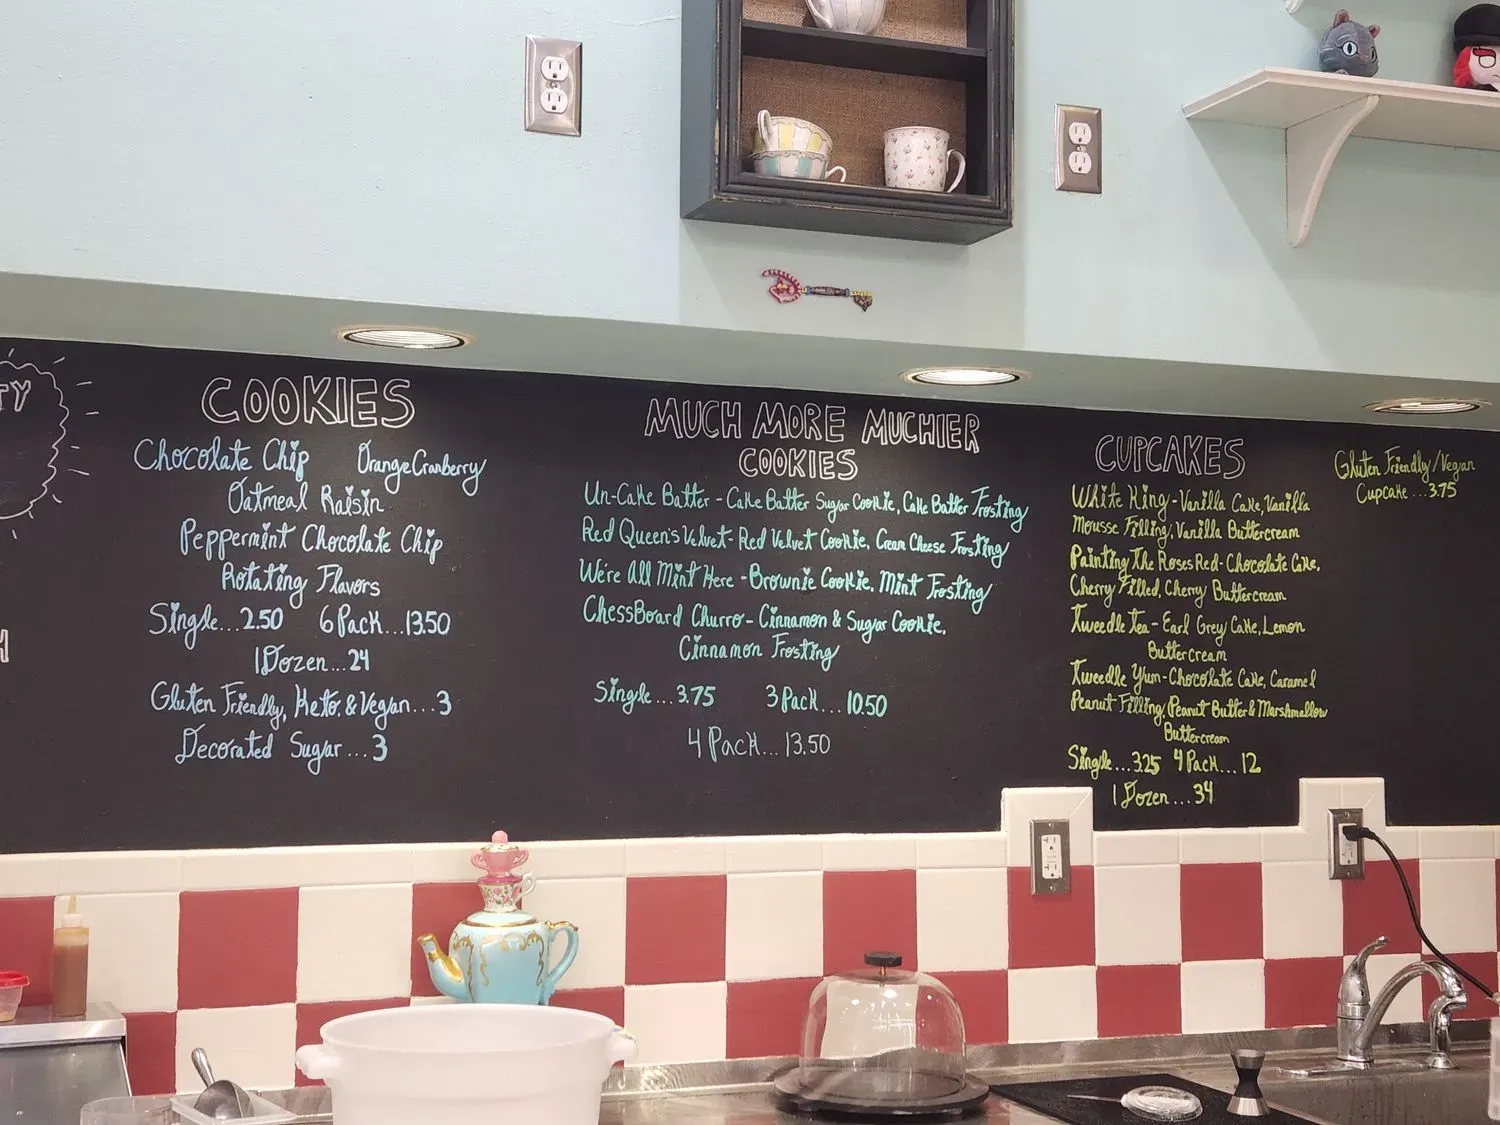 TY
H
COOKIES
Chocolate Chip Orange Cranberry
Oatmeal Raisin
Peppermint Chocolate Chip
Rotating Flavors
Single...2.50 6 Pack...13.50
1 Dozen...24
Gluten Friendly, Keto, & Vegan...3
Decorated Sugar...3
MUCH MORE MUCHIER
COOKIES
Un-Cake Batter - Cake Batter Sugar Cookie, Cake Batter Frosting
Red Queen's Velvet - Red Velvet Cookie, Cream Cheese Frosting
We're All Mint Here - Brownie Cookie, Mint Frosting
ChessBoard Churro - Cinnamon & Sugar Cookie,
Cinnamon Frosting
Single...3.75 3 Pack...10.50
4 Pack...13.50
CUPCAKES
White King - Vanilla Cake, Vanilla
Mousse Filling, Vanilla Buttercream
Painting The Roses Red - Chocolate Cake,
Cherry Filled, Cherry Buttercream
Tweedle Tea - Earl Grey Cake, Lemon
Buttercream
Tweedle Yum - Chocolate Cake, Caramel
Peanut Filling, Peanut Butter & Marshmallow
Buttercream
Single...3.25 4 Pack...12
1 Dozen...34
Gluten Friendly/Vegan
Cupcake...3.75